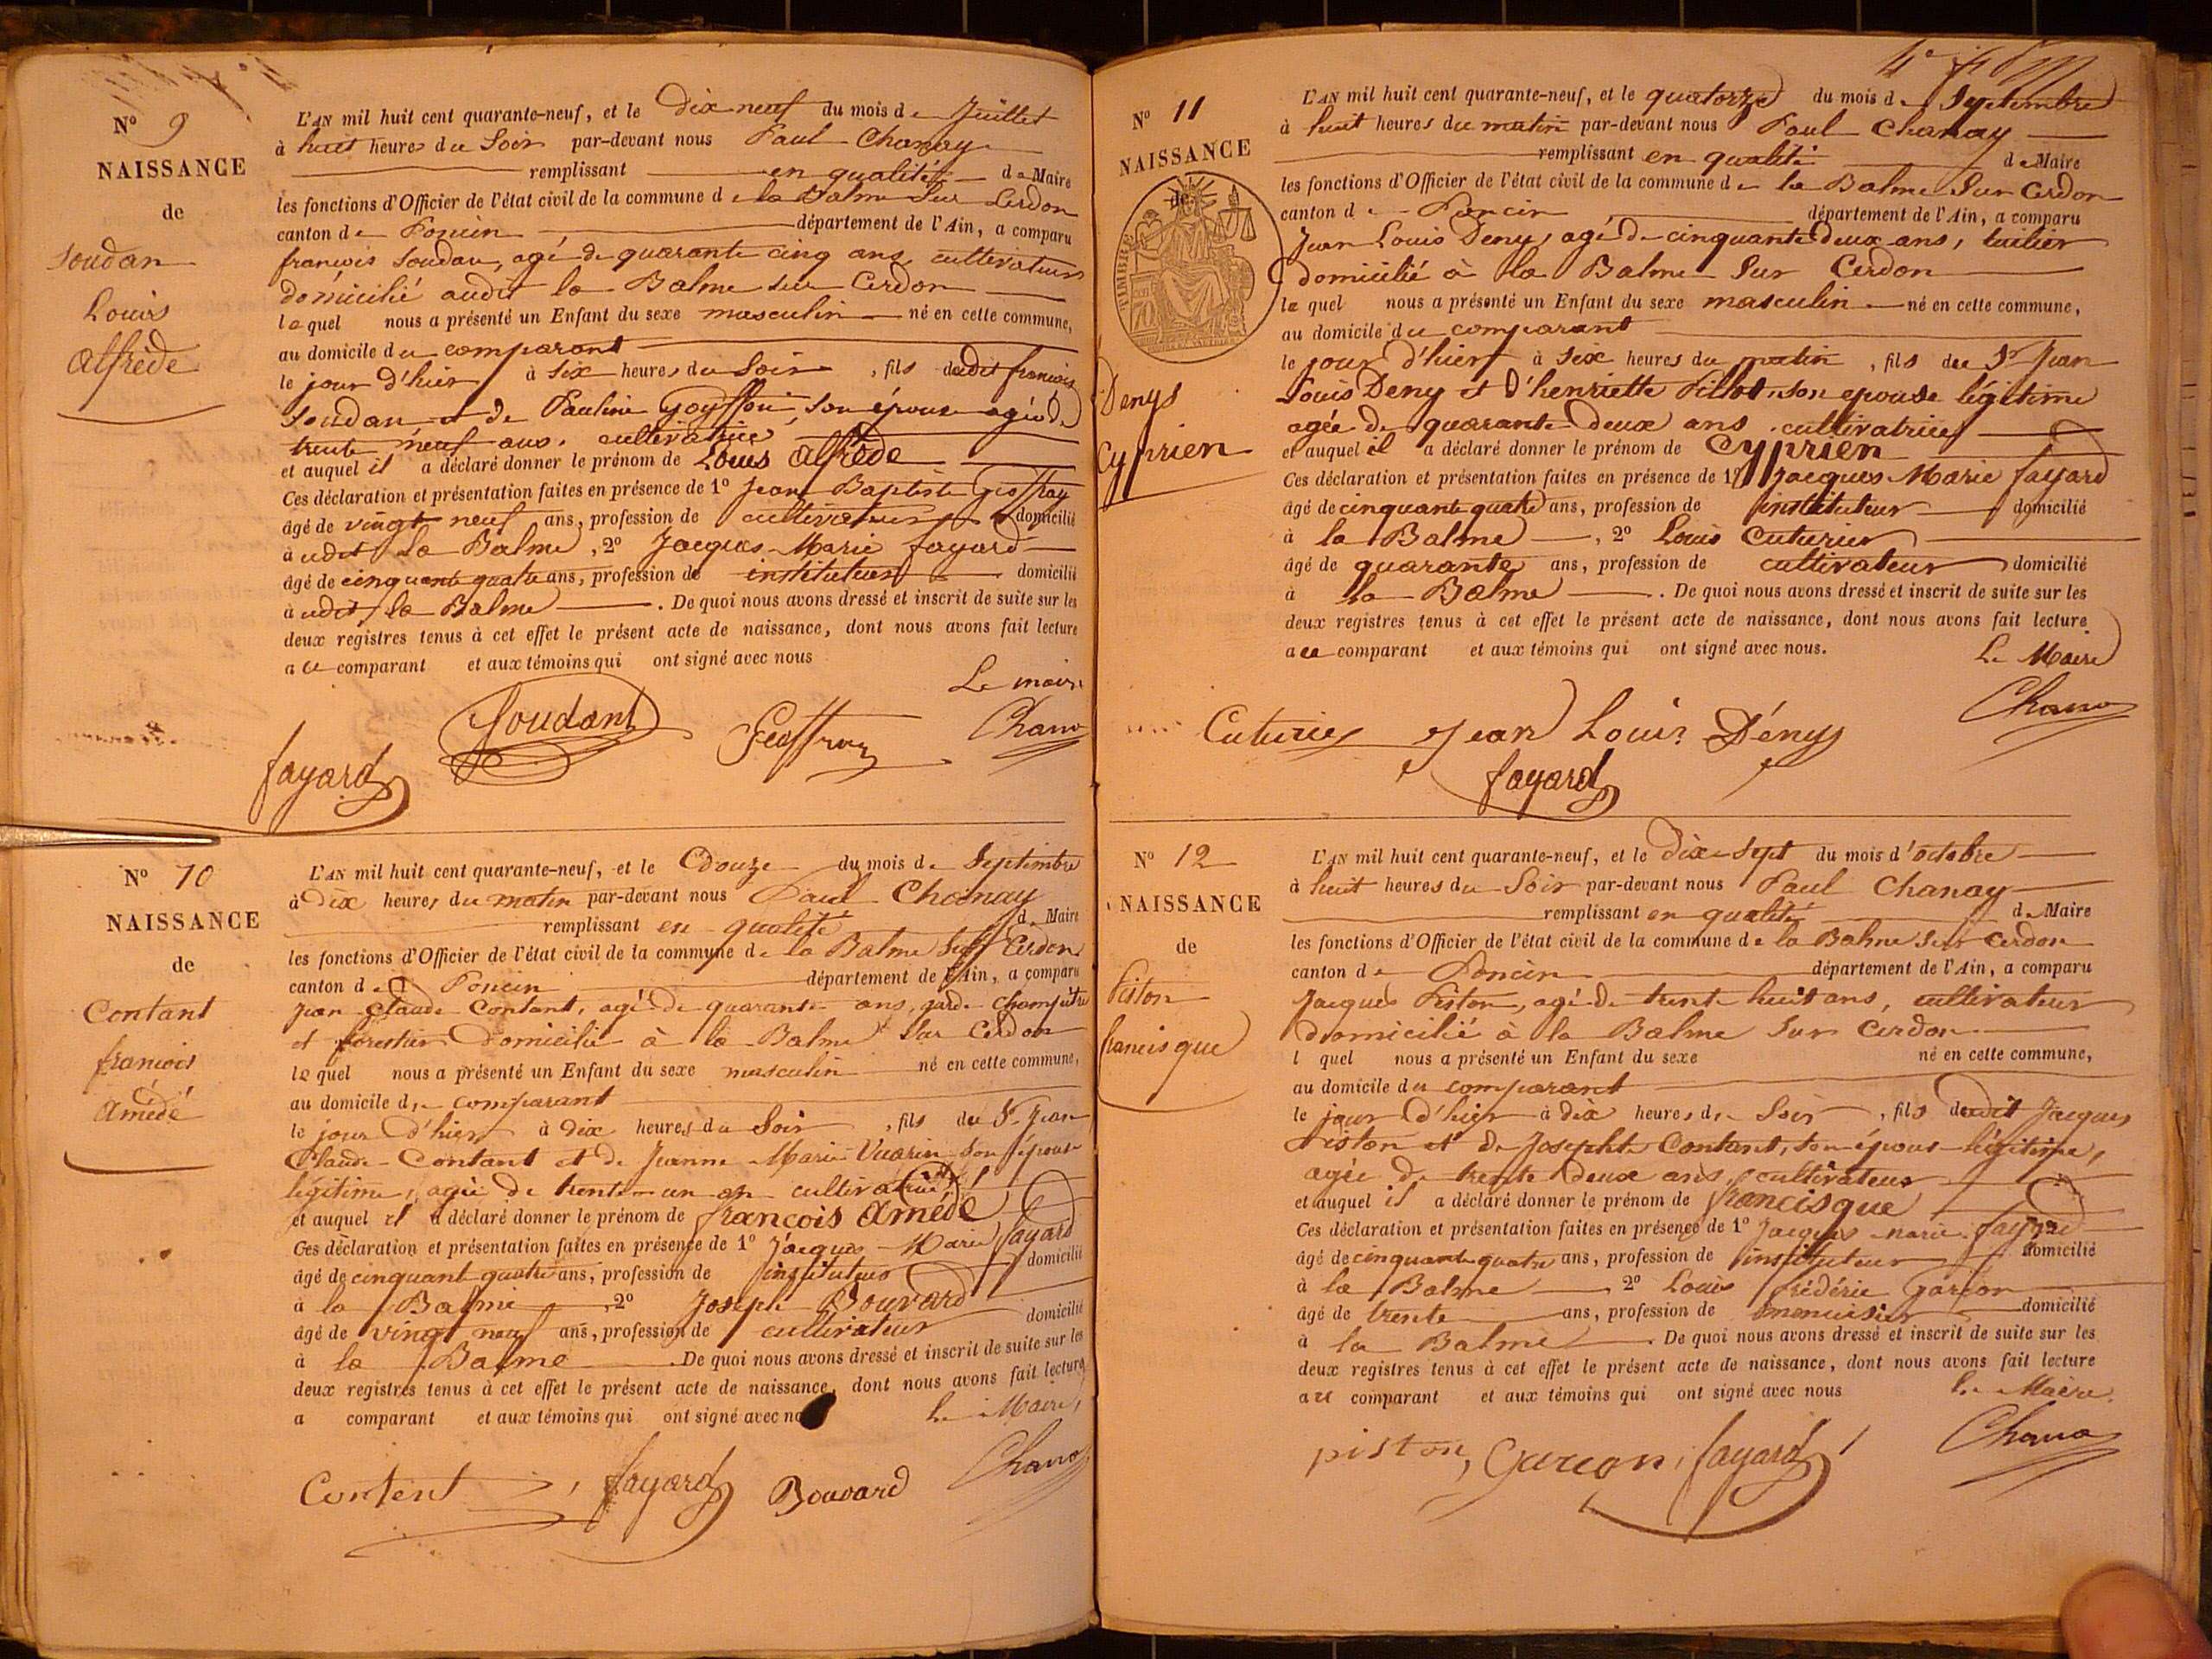 Nº 9
NAISSANCE
de
Soudan
Louis
Alfrède
L'AN mil huit cent quarante-neuf, et le Dix neuf du mois de Juillet
à huit heures du Soir par-devant nous Paul Chanay
remplissant en qualité de Maire
les fonctions d'Officier de l'état civil de la commune de la Balme Sur Cerdon
canton de Poncin département de l'Ain, a comparu
françois Soudan, agé de quarante cinq ans, cultivateur
domicilié audit la Balme sur Cerdon
lequel nous a présenté un Enfant du sexe masculin né en cette commune,
au domicile du comparant
le jour d'hier à six heures du Soir, fils dudit françois
Soudan et de Pauline son épouse agée de
trente neuf ans, cultivatrice
et auquel il a déclaré donner le prénom de Louis Alfrède
Ces déclaration et présentation faites en présence de 1º Jean Baptiste Geoffray
âgé de vingt neuf ans, profession de cultivateur domicilié
à udit la Balme, 2º Jacques Marie fayard
âgé de cinquante quatre ans, profession de instituteur domicilié
à udit la Balme. De quoi nous avons dressé et inscrit de suite sur les
deux registres tenus à cet effet le présent acte de naissance, dont nous avons fait lecture
a ce comparant et aux témoins qui ont signé avec nous
Le maire
Soudant
Geoffray
Chana
fayard
Nº 10
NAISSANCE
de
Contant
françois
Amédé
L'AN mil huit cent quarante-neuf, et le Douze du mois de Septembre
à Dix heures du matin par-devant nous Paul Chanay
remplissant en qualité de Maire
les fonctions d'Officier de l'état civil de la commune de la Balme Sur Cerdon
canton de Poncin département de l'Ain, a comparu
Jean Claude Contant, agé de quarante ans, garde champêtre
et forestier domicilié à la Balme Sur Cerdon
lequel nous a présenté un Enfant du sexe masculin né en cette commune,
au domicile du comparant
le jour d'hier à dix heures du Soir, fils du Sr Jean
Claude Contant et de Jeanne Marie Vuarin son épouse
légitime, agée de trente un an cultivatrice
et auquel il a déclaré donner le prénom de françois Amédé
Ces déclaration et présentation faites en présence de 1º Jacques Marie fayard
âgé de cinquant quatre ans, profession de instituteur domicilié
à la Balme, 2º Joseph Bouvard
âgé de vingt neuf ans, profession de cultivateur domicilié
à la Balme. De quoi nous avons dressé et inscrit de suite sur les
deux registres tenus à cet effet le présent acte de naissance, dont nous avons fait lecture
a comparant et aux témoins qui ont signé avec
le Maire,
Chana
Content, fayard Bouvard
4e
Nº 11
NAISSANCE
de
TIMBRE
70
Denys
Cyprien
L'AN mil huit cent quarante-neuf, et le quatorze du mois de Septembre
à huit heures du matin par-devant nous Paul Chanay
remplissant en qualité de Maire
les fonctions d'Officier de l'état civil de la commune de la Balme Sur Cerdon
canton de Poncin département de l'Ain, a comparu
Jean Louis Deny, agé de cinquante deux ans, tuilier
domicilié à la Balme Sur Cerdon
lequel nous a présenté un Enfant du sexe masculin né en cette commune,
au domicile du comparant
le jour d'hier à six heures du matin, fils du Sr Jean
Louis Deny et d'henriette son epouse légitime
agée de quarante deux ans cultivatrice
et auquel il a déclaré donner le prénom de Cyprien
Ces déclaration et présentation faites en présence de 1º Jacques Marie fayard
âgé de cinquante quatre ans, profession de instituteur domicilié
à la Balme, 2º Louis Cuturier
âgé de quarante ans, profession de cultivateur domicilié
à la Balme. De quoi nous avons dressé et inscrit de suite sur les
deux registres tenus à cet effet le présent acte de naissance, dont nous avons fait lecture
a ce comparant et aux témoins qui ont signé avec nous.
Le Maire
Chana
Cuturier Jean Louis Dény
fayard
Nº 12
NAISSANCE
de
Piston
francisque
L'AN mil huit cent quarante-neuf, et le Dix Sept du mois d'octobre
à huit heures du Soir par-devant nous Paul Chanay
remplissant en qualité de Maire
les fonctions d'Officier de l'état civil de la commune de la Balme Sur Cerdon
canton de Poncin département de l'Ain, a comparu
Jacques Piston, agé de trente huit ans, cultivateur
domicilié à la Balme Sur Cerdon
l quel nous a présenté un Enfant du sexe né en cette commune,
au domicile du comparant
le jour d'hier à dix heures du Soir, fils dudit Jacques
Piston et de Josephte Contant, son épouse légitime,
agée de trente deux ans, cultivateur
et auquel il a déclaré donner le prénom de francisque
Ces déclaration et présentation faites en présence de 1º Jacques marie fayard
âgé de cinquante quatre ans, profession de instituteur domicilié
à la Balme 2º Louis frédéric Garcon
âgé de trente ans, profession de menuisier domicilié
à la Balme. De quoi nous avons dressé et inscrit de suite sur les
deux registres tenus à cet effet le présent acte de naissance, dont nous avons fait lecture
a ce comparant et aux témoins qui ont signé avec nous
le Maire
Chana
piston, Garcon, fayard